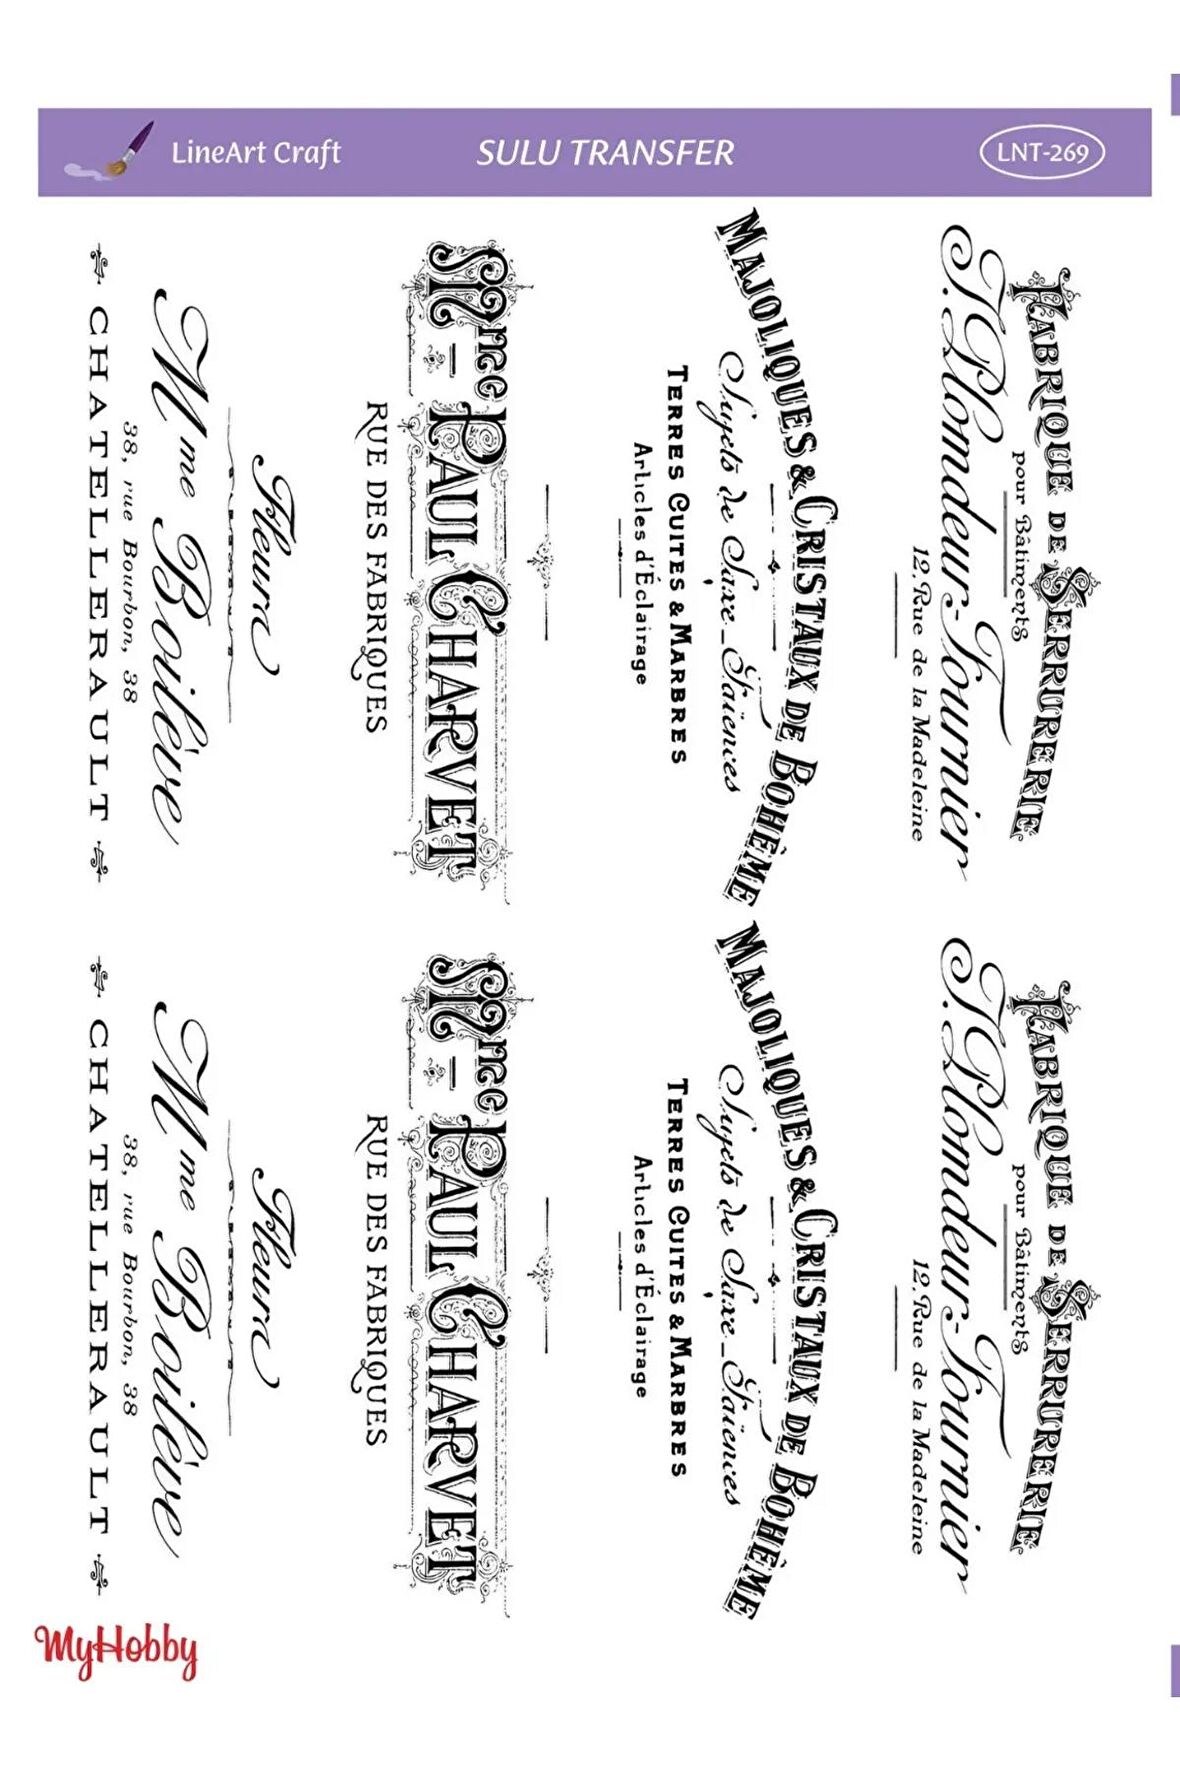 LineArt Craft
SULU TRANSFER
LNT-269
FABRIQUE DE SERRURERIE
pour Bâtiments
J. Plomdeur-Tournier
12, Rue de la Madeleine
MAJOLIQUES & CRISTAUX DE BOHÈME
Sujets de Saxe _ Faïences
TERRES CUITES & MARBRES
Articles d'Éclairage
Mce PAUL CHARVET
RUE DES FABRIQUES
Fleurs
Mme Boilève
38, rue Bourbon, 38
CHATELLERAULT
FABRIQUE DE SERRURERIE
pour Bâtiments
J. Plomdeur-Tournier
12, Rue de la Madeleine
MAJOLIQUES & CRISTAUX DE BOHÈME
Sujets de Saxe _ Faïences
TERRES CUITES & MARBRES
Articles d'Éclairage
Mce PAUL CHARVET
RUE DES FABRIQUES
Fleurs
Mme Boilève
38, rue Bourbon, 38
CHATELLERAULT
MyHobby